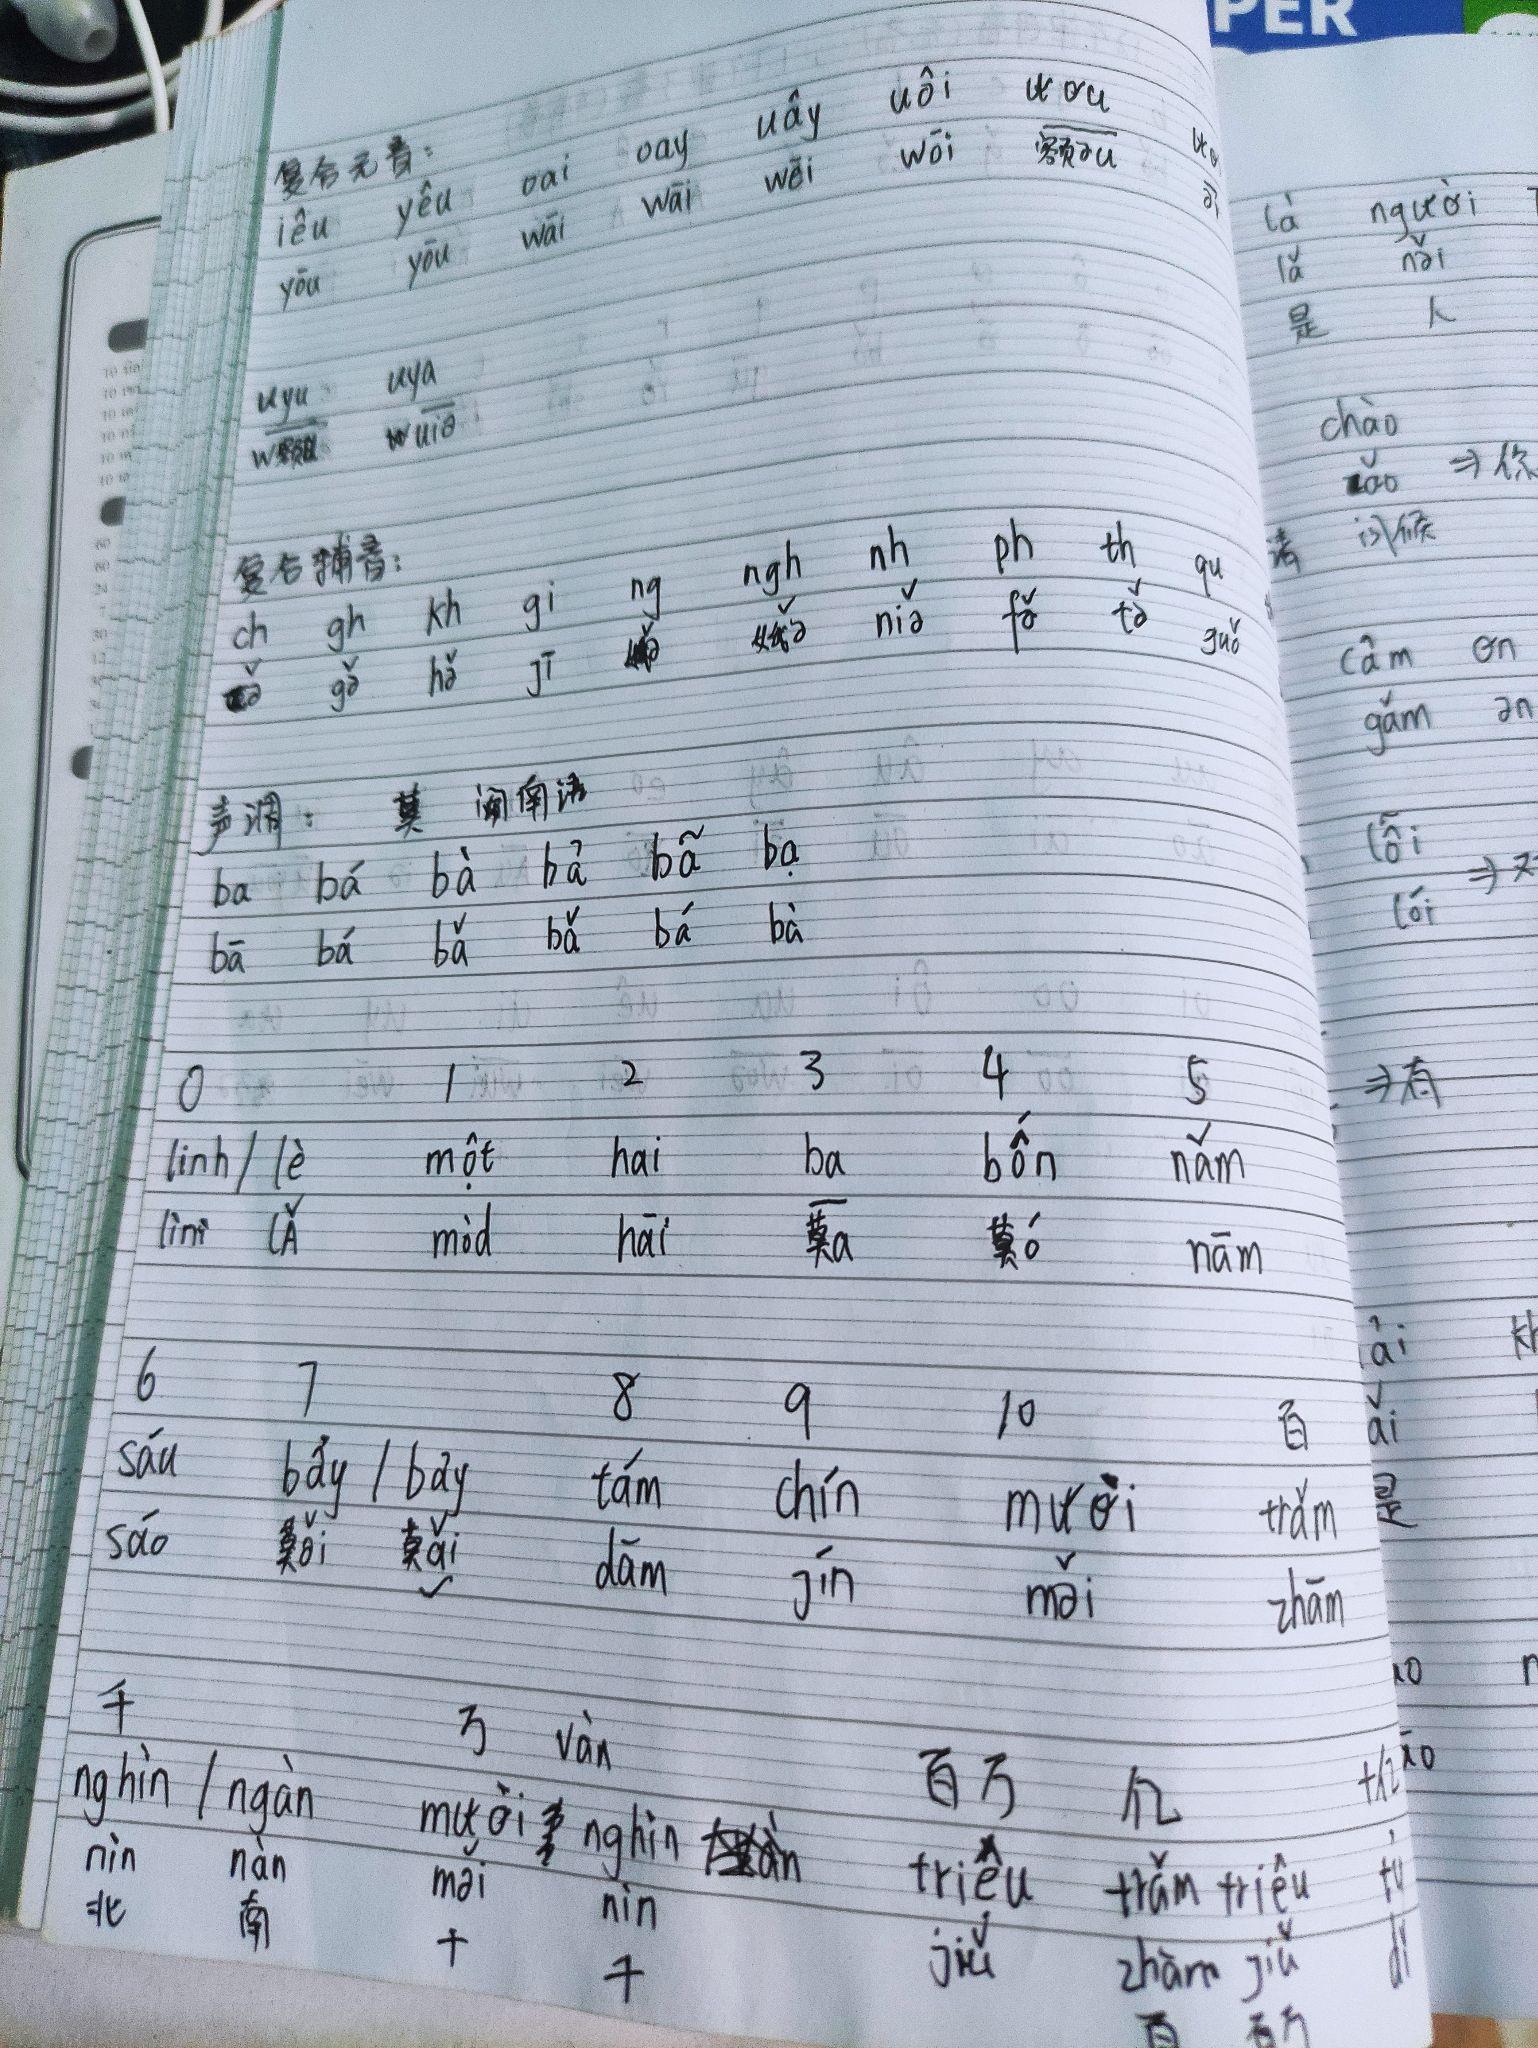 PER
复合元音：
iêu yêu oai oay uây uôi ươu
yōu yōu wāi wāi wēi wōi 额əu
uyu uya
wuiə
复合辅音：
ch gh kh gi ng ngh nh ph th qu
gə̌ hə̌ jī niə̌ fə̌ tə̌ guǒ
声调： 莫 闽南语
ba bá bà bả bã bạ
bā bá bǎ bǎ bá bà
0 1 2 3 4 5
linh / lè một hai ba bốn năm
lǎ mòd hāi 莫a 莫ó nām
6 7 8 9 10 百
sáu bảy / bảy tám chín mười trăm
sáo 莫ə̌i 莫ǎi dām jín mə̌i zhām
千 万 vàn 百万 亿 十亿
nghìn / ngàn mười nghìn triệu trăm triệu tỷ
nìn nàn mə̌i nìn jiǔ zhàm jiǔ dǐ
北 南 十 千 百 百万
là người
lǎ nə̌i
是 人
chào
ǎo ⇒ 你
请 问候
cảm ơn
gǎm ən
lỗi
lói ⇒
⇒ 有
ải
ǎi
是